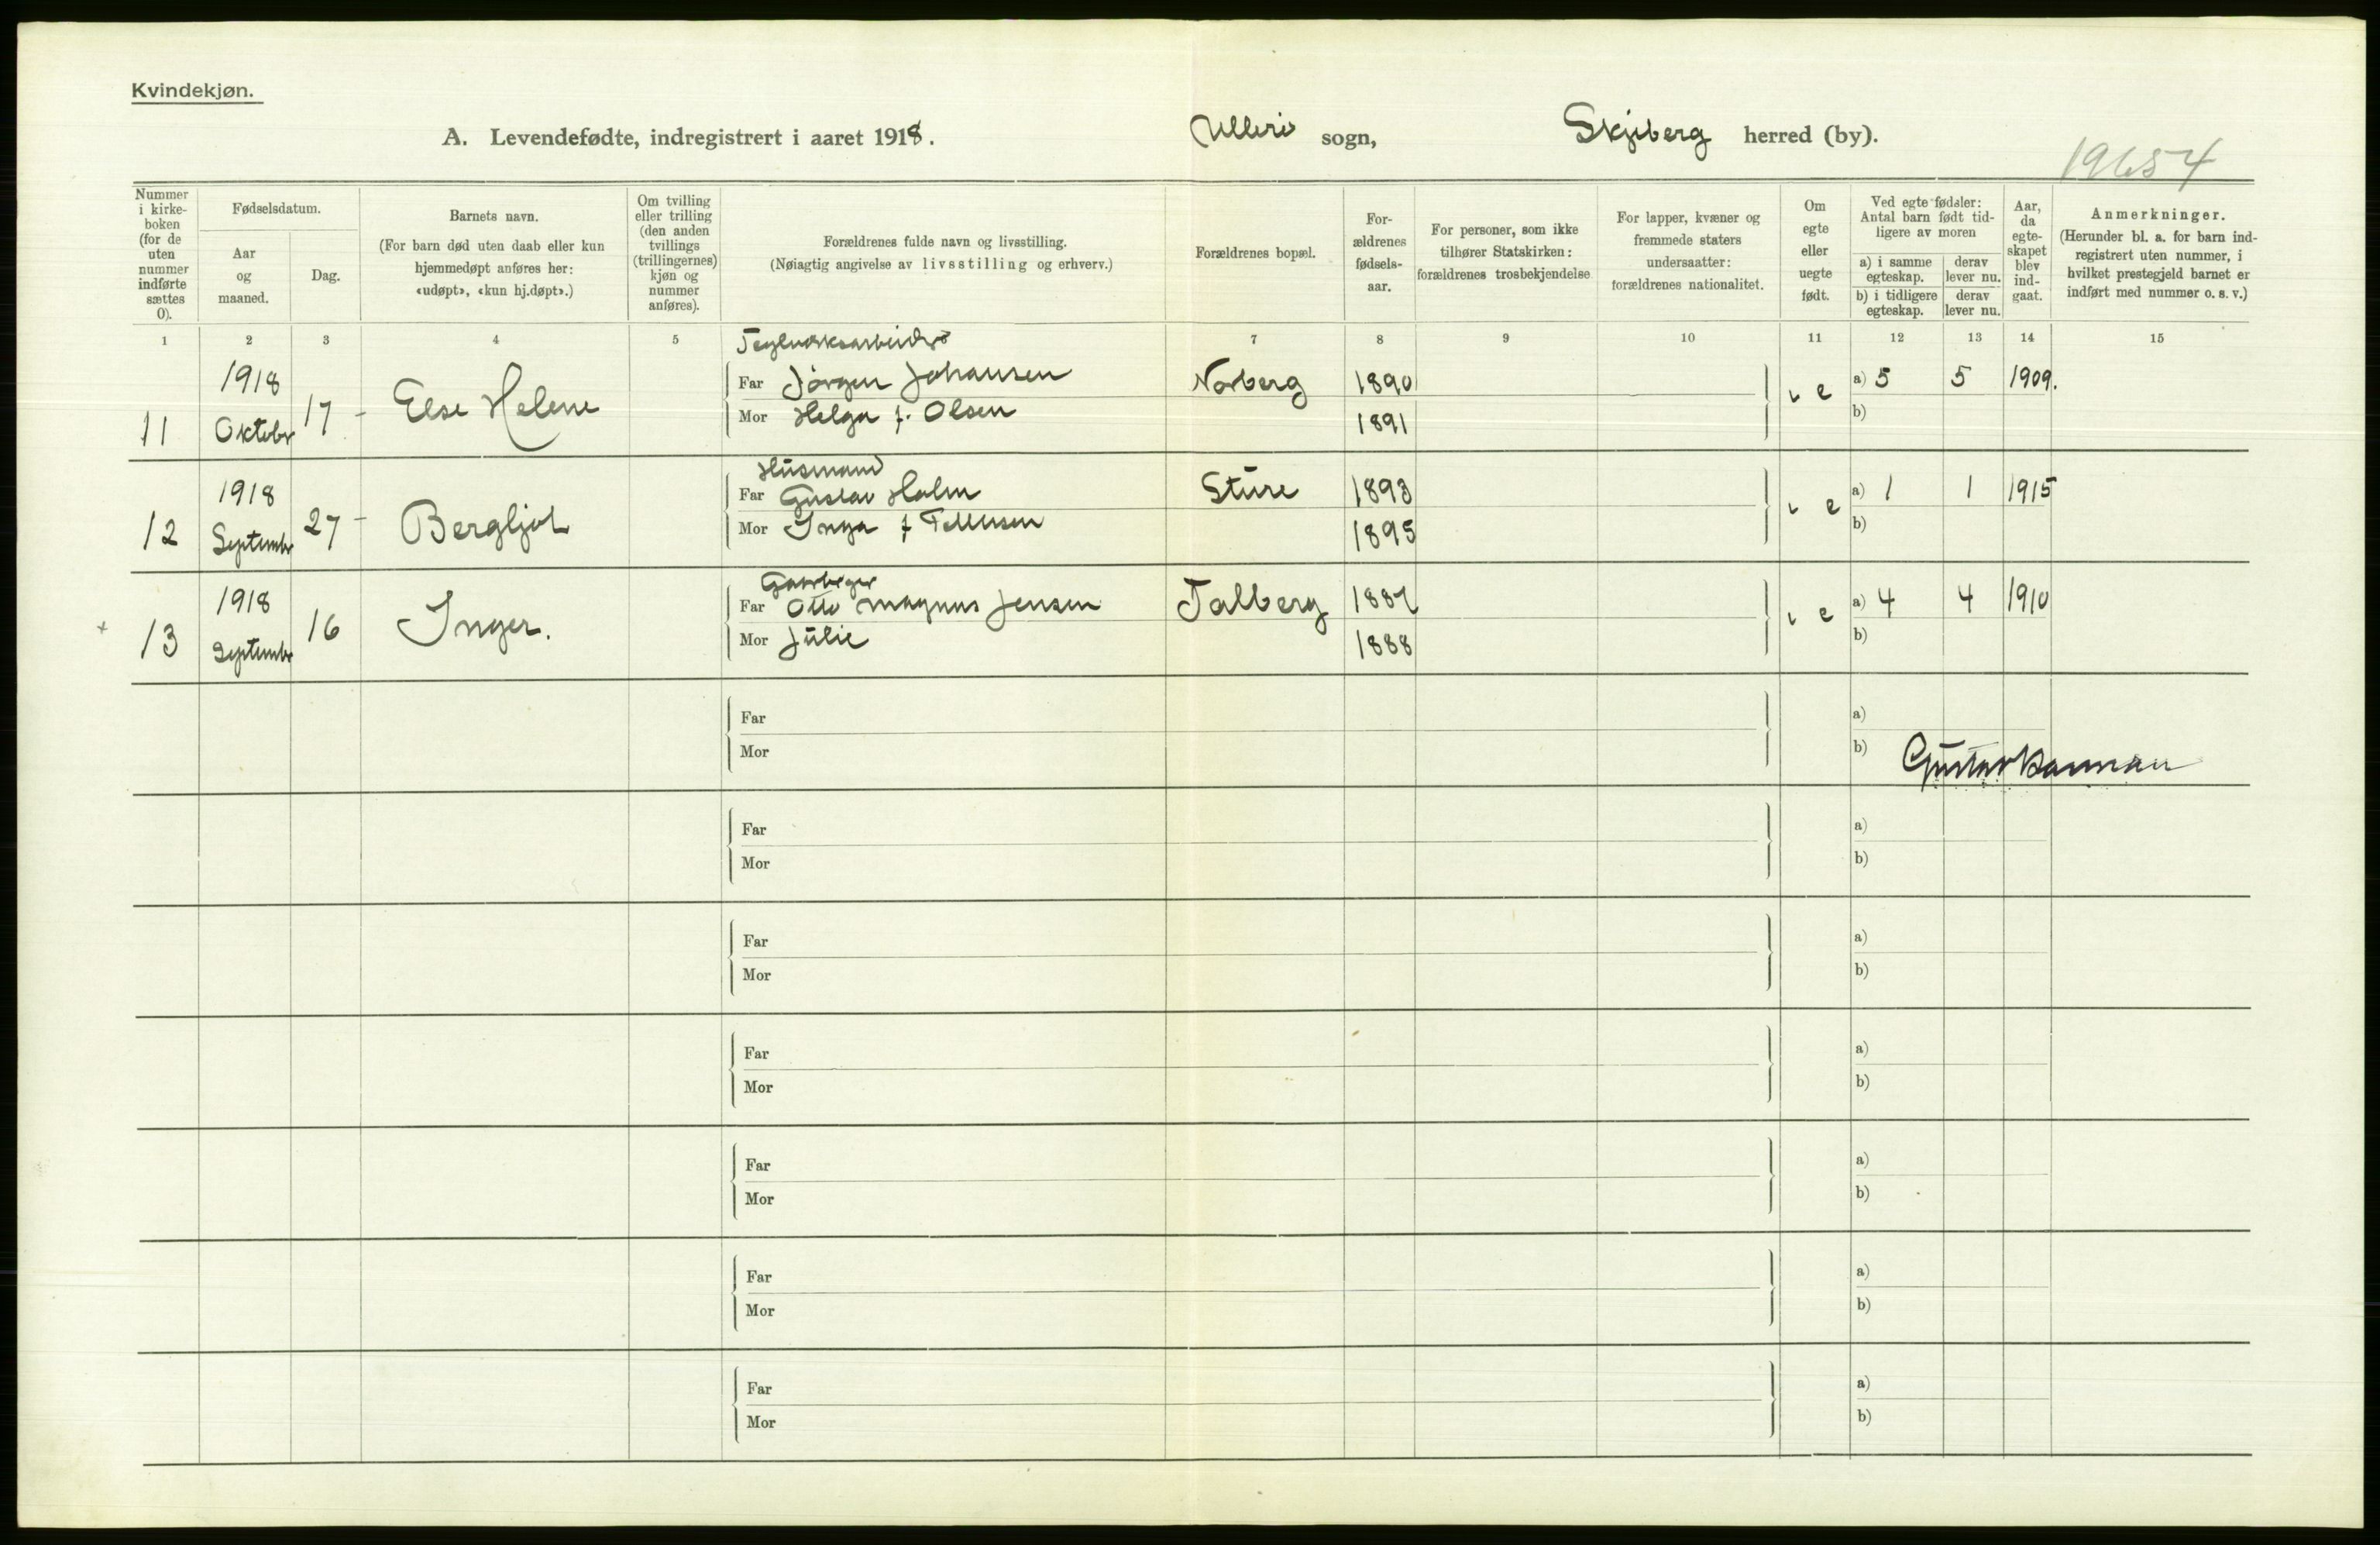 Kvindekjøn.
A. Levendefødte, indregistrert i aaret 1918. Ullerø sogn, Skjeberg herred (by).
19654
Nummer i kirke-boken (for de uten nummer indførte sættes 0).
Fødselsdatum.
Aar og maaned.
Dag.
Barnets navn.
(For barn død uten daab eller kun hjemmedøpt anføres her: «udøpt», «kun hj.døpt».)
Om tvilling eller trilling (den anden tvillings (trillingernes) kjøn og nummer anføres).
Forældrenes fulde navn og livsstilling.
(Nøiagtig angivelse av livsstilling og erhverv.)
Forældrenes bopæl.
For-ældrenes fødsels-aar.
For personer, som ikke tilhører Statskirken: forældrenes trosbekjendelse
For lapper, kvæner og fremmede staters undersaatter: forældrenes nationalitet.
Om egte eller uegte født.
Ved egte fødsler: Antal barn født tid-ligere av moren
a) i samme egteskap.
derav lever nu.
b) i tidligere egteskap.
derav lever nu.
Aar, da egte-skapet blev ind-gaat.
Anmerkninger.
(Herunder bl. a. for barn ind-registrert uten nummer, i hvilket prestegjeld barnet er indført med nummer o. s. v.)
1 2 3 4 5 7 8 9 10 11 12 13 14 15
Teglverksarbeider
1918 Far Jörgen Johansen Norberg 1890 a) 5 5 1909.
11 Oktober 17 - Else Helene Mor Helga f. Olsen 1891 e b)
Husmand
1918 Far Gustav Holm Sture 1893 a) 1 1 1915
12 September 27 - Bergljot Mor Inga f 1895 e b)
1918 Far Otto Magnus Jensen Talberg 1887 a) 4 4 1910
13 September 16 Inger. Mor Julie 1888 e b)
Far a)
Mor b)
Gustav
Far a)
Mor b)
Far a)
Mor b)
Far a)
Mor b)
Far a)
Mor b)
Far a)
Mor b)
Far a)
Mor b)